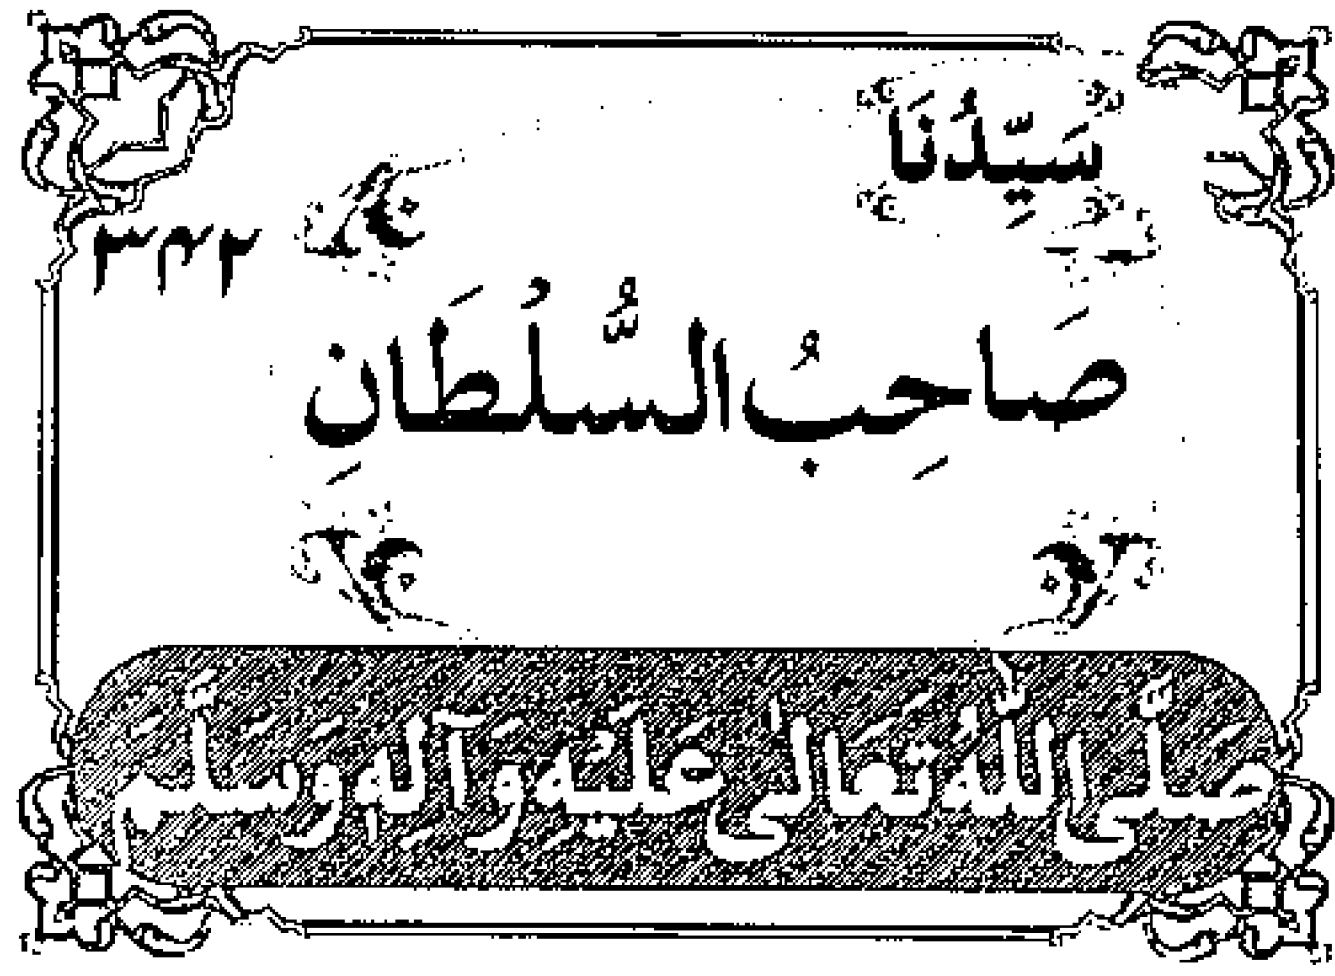 سَيِّدُنَا
۳۴۲
صَاحِبُ السُّلْطَانِ
صَلَّى اللّٰهُ تَعَالٰى عَلَيْهِ وَآلِهٖ وَسَلَّمَ